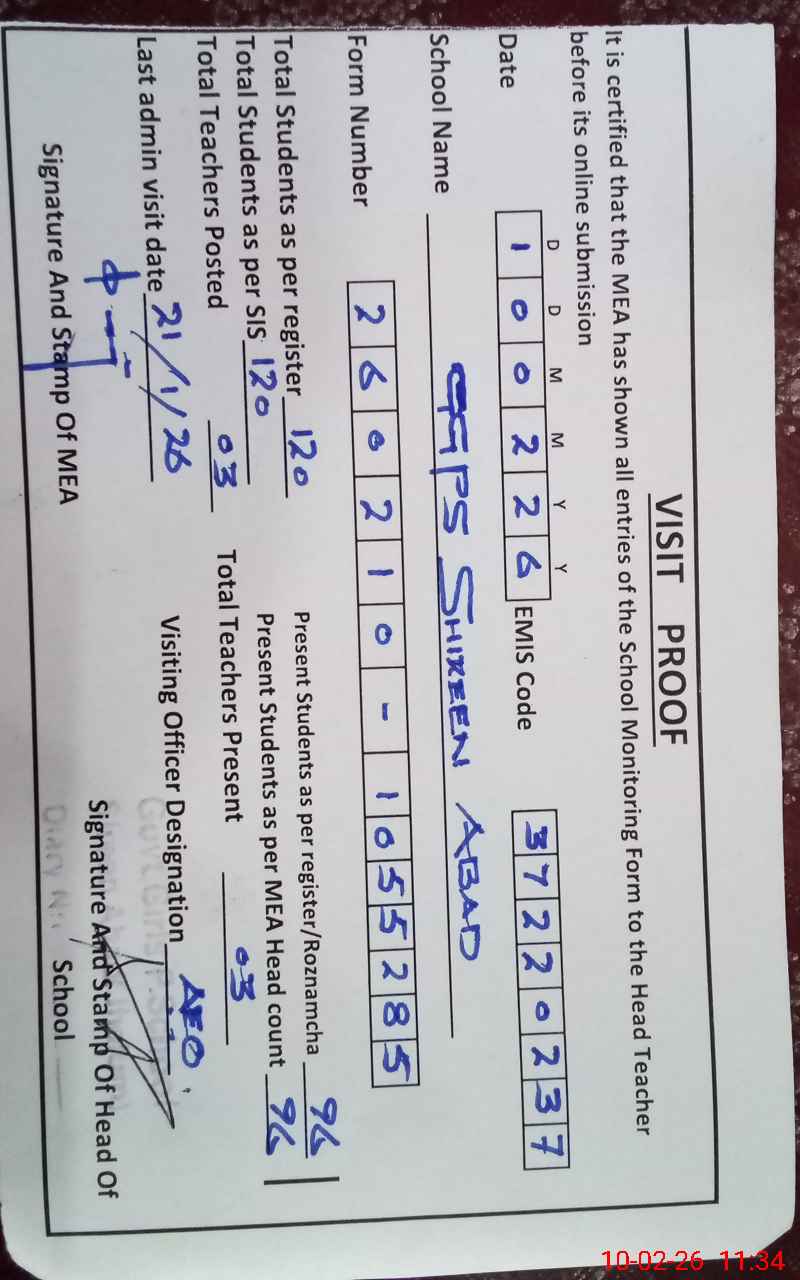 VISIT PROOF
It is certified that the MEA has shown all entries of the School Monitoring Form to the Head Teacher
before its online submission
D D M M Y Y
Date 1 0 0 2 2 6 EMIS Code 3 7 2 2 0 2 3 7
School Name GGPS SHIREEN ABAD
Form Number 2 6 0 2 1 0 - 1 0 5 5 2 8 5
Total Students as per register 120 Present Students as per register/Roznamcha 96
Total Students as per SIS 120 Present Students as per MEA Head count 96
Total Teachers Posted 03 Total Teachers Present 03
Last admin visit date 21/1/26 Visiting Officer Designation AEO
Signature And Stamp Of MEA Signature And Stamp Of Head Of
School
Govt. Girls
Diary No.
10-02-26 11:34